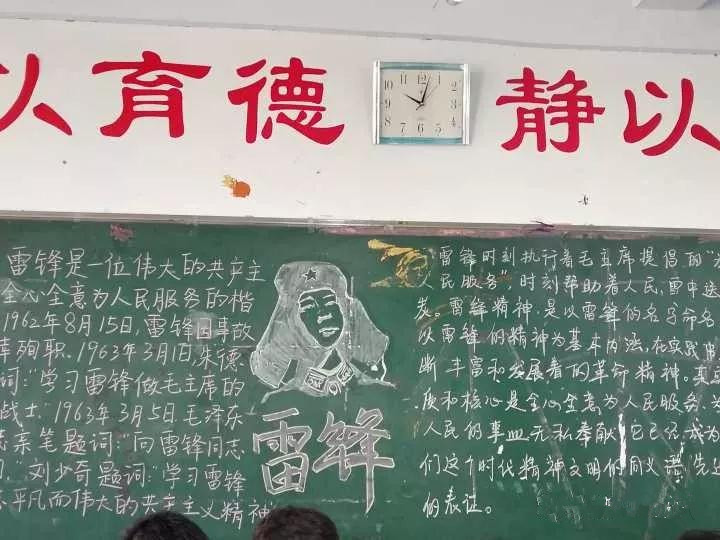 以育德 静以
雷锋是一位伟大的共产主
全心全意为人民服务的楷
1962年8月15日,雷锋因事故
殉职.1963年3月1日,朱德
词:"学习雷锋做毛主席的
战士"1963年3月5日毛泽东
志亲笔题词:"向雷锋同志
"刘少奇题词:"学习雷锋
平凡而伟大的共产主义精神
雷锋
雷锋时刻执行着毛主席提倡的"
人民服务"时刻帮助着人民,雪中送
雷锋精神,是以雷锋的名字命名
以雷锋的精神为基本内涵,在实践中
断丰富和发展着的革命精神。其实
质和核心是全心全意为人民服务,为
人民的事业无私奉献,它已经成为
们这个时代精神文明的同义语"先进
的表征。